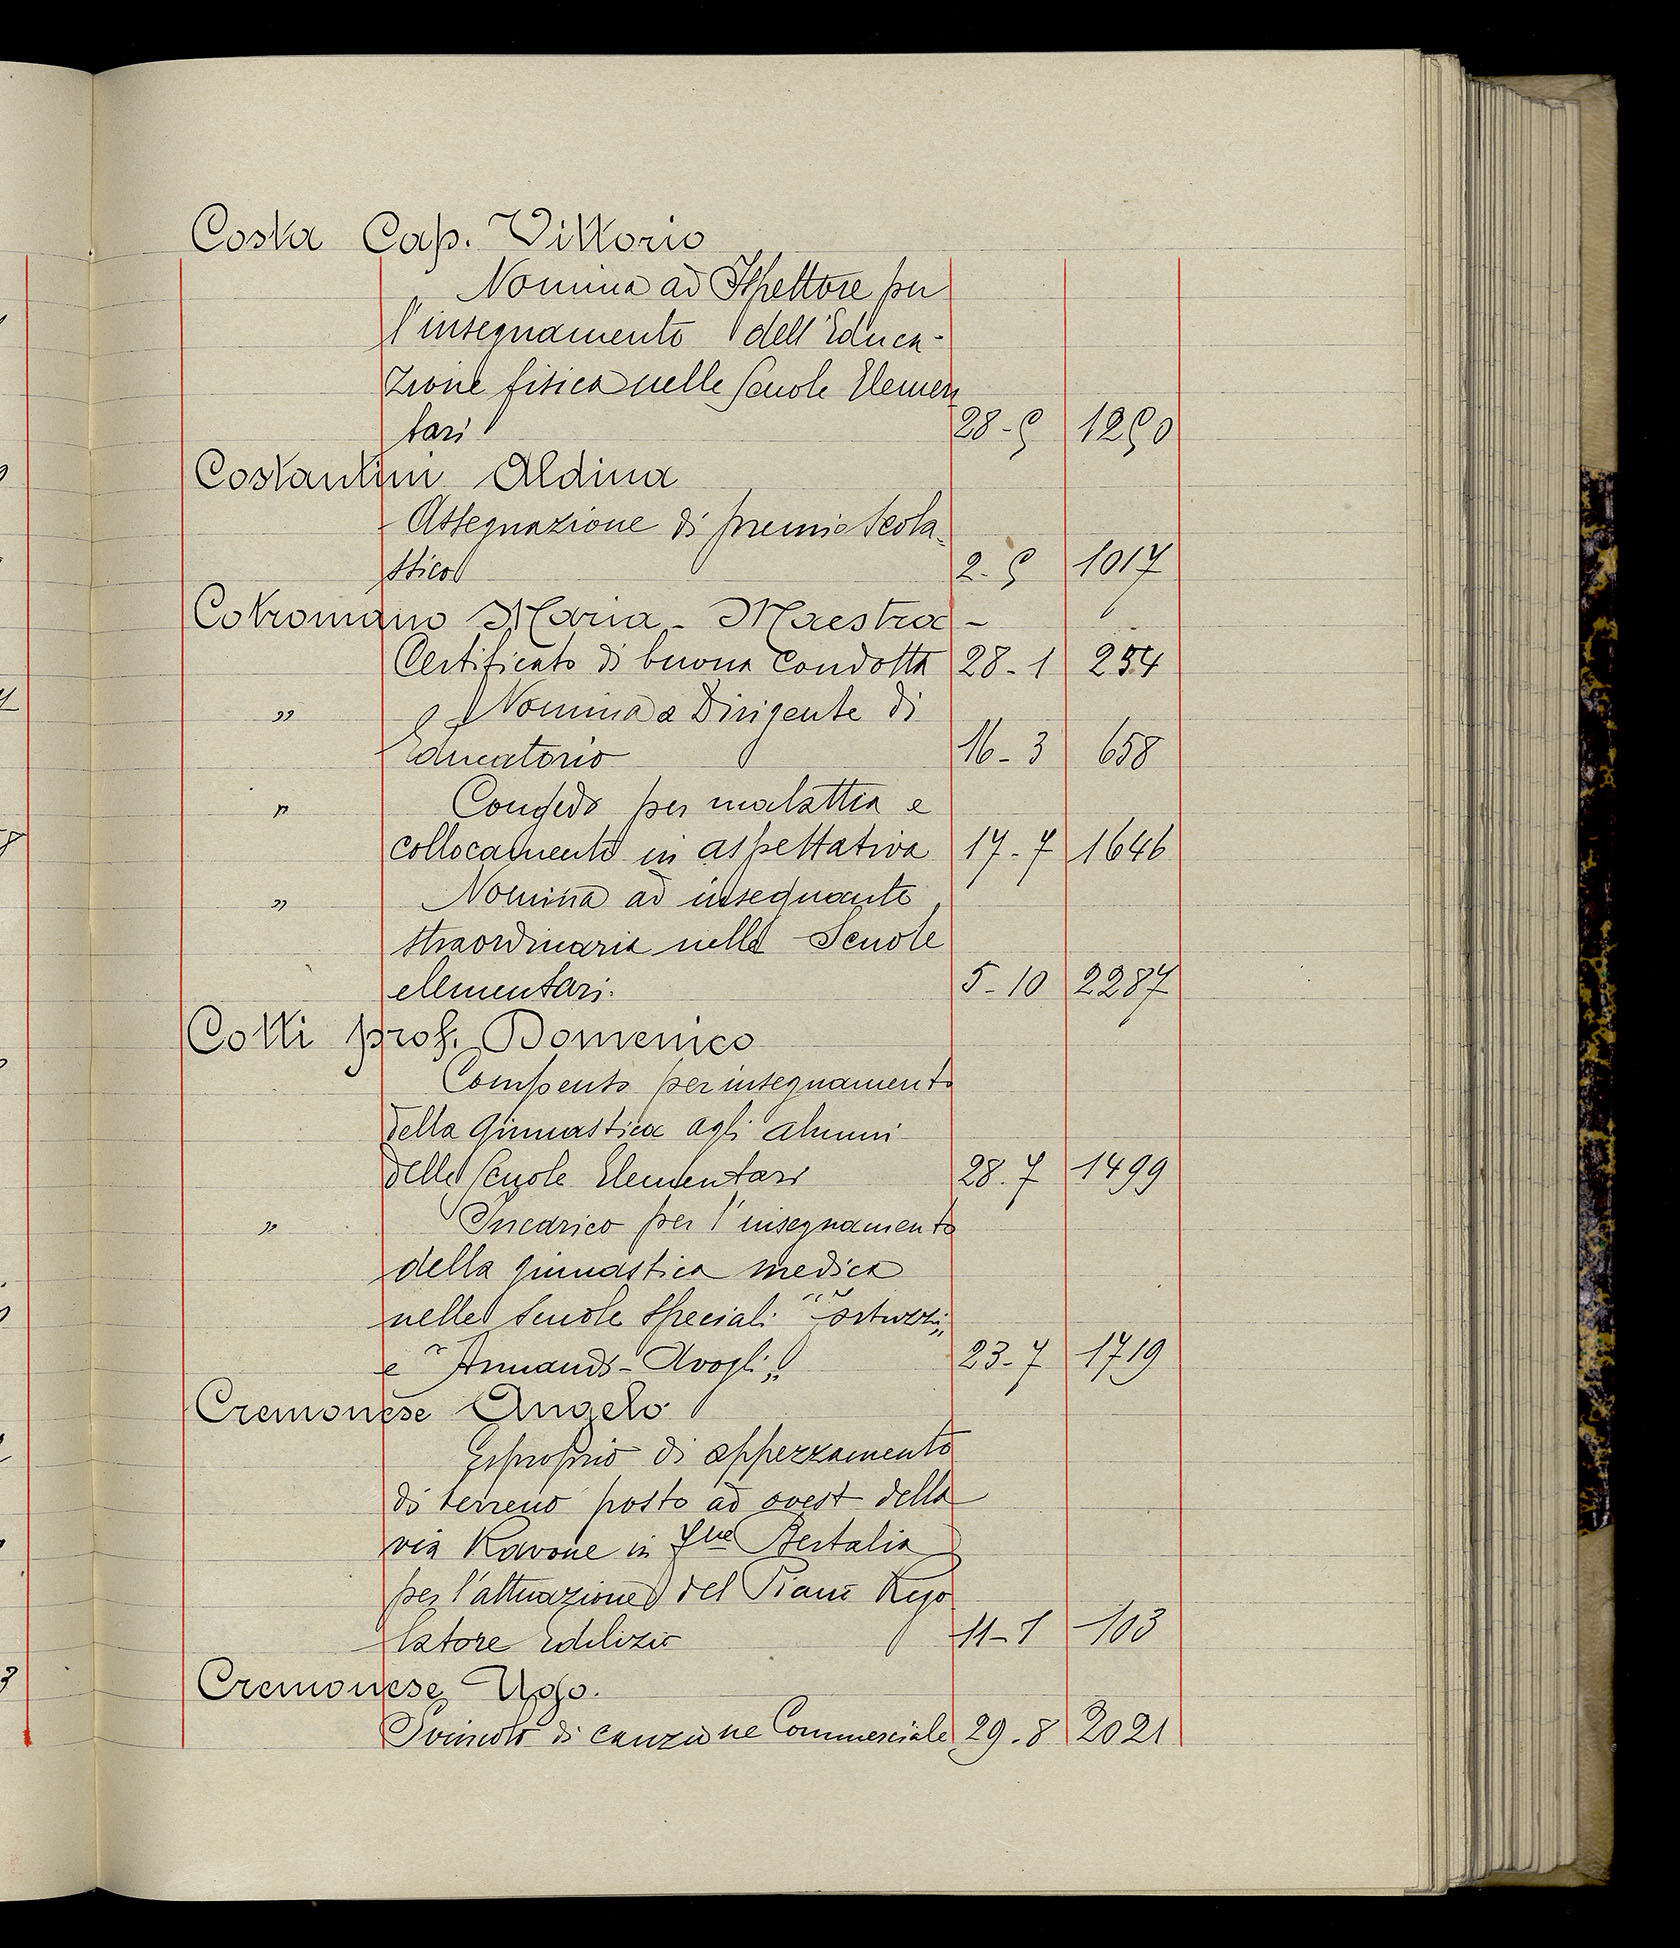 Costa Cap. Vittorio
Nomina ad Ispettore per
l'insegnamento dell'Educa-
zione fisica nelle Scuole Elemen
tari 28-5 1250
Costantini Aldina
Assegnazione di premio scola-
stico 2-5 1017
Cotromano Maria - Maestra -
Certificato di buona condotta 28-1 254
" Nomina a Dirigente di
Educatorio 16-3 658
" Congedo per malattia e
collocamento in aspettativa 17-7 1646
" Nomina ad insegnante
straordinaria nelle Scuole
elementari. 5-10 2287
Cotti prof. Domenico
Compenso per insegnamento
della ginnastica agli alunni
delle Scuole Elementari 28.7 1499
" Incarico per l'insegnamento
della ginnastica medica
nelle scuole speciali
e "Armandi-Avogli" 23-7 1719
Cremonese Angelo
Esproprio di appezzamento
di terreno posto ad ovest della
via Ravone in fne Bertalia
per l'attuazione del Piano Rego
latore Edilizio 11-1 103
Cremonese Ugo.
Svincolo di cauzione Commerciale 29.8 2021